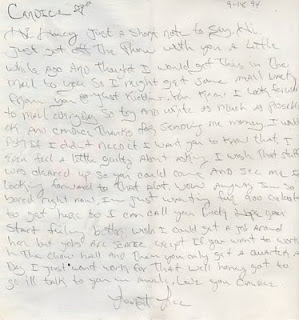 CANDICE 9-18 94
Hi Honey Just a short note to Say Hi.
Just got off The Phone with you a little
while Ago And Thought I would get This in The
mail to you So I might get some mail lately
from you Just Kidding. You Know I look forward
to mail everyday So try and write as much as Possible
OK And Candice Thanks for sending me money I would
if I didn't need it I want you to know that I
Even feel a little guilty About asking I wish That stuff
was cleared up so you could come And see me I
Looking forward to that a lot. Wow Anyway I am so
bored right now Im just wanting for 900 oclock
to get here so I can call you back I hope you
Start feeling better wish I could get a job around
here but jobs Are Scarce except if you want to work
in The chow hall And Then you only get a quarter A
Day I just want work for That well honey got to
go ill talk to you in awhile, Love you Candice